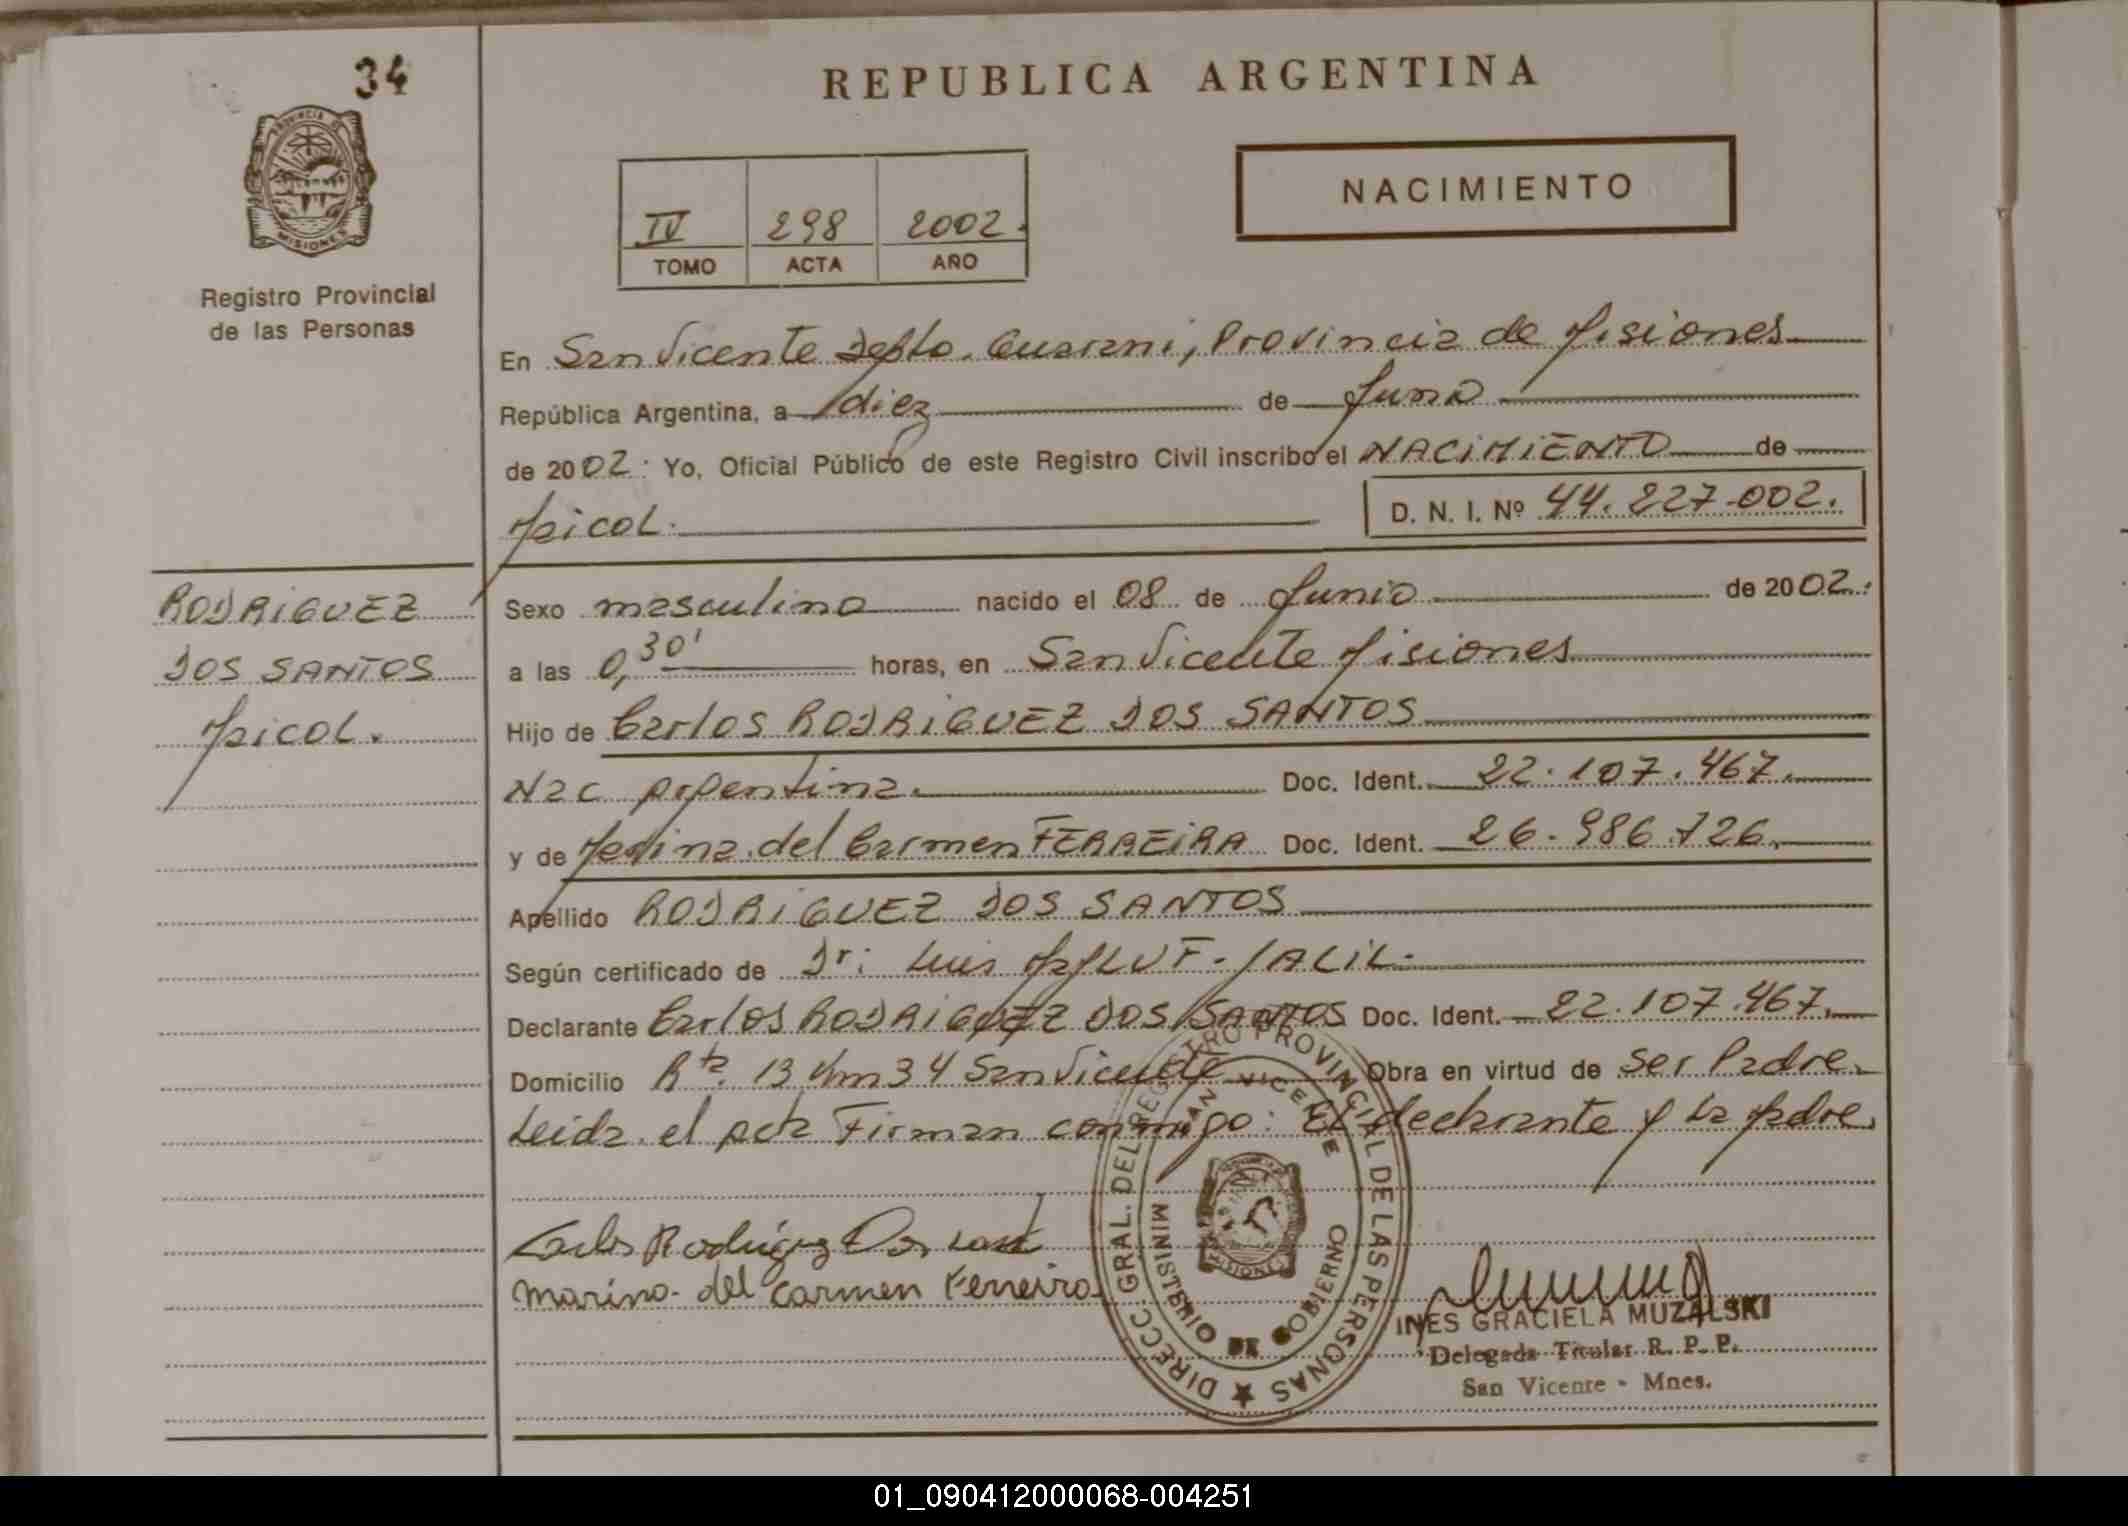 34
REPUBLICA ARGENTINA
PROVINCIA DE
MISIONES
Registro Provincial
de las Personas
NACIMIENTO
IV 298 2002.
TOMO ACTA AÑO
En San Vicente Depto. Guarani, Provincia de Misiones
República Argentina, a diez de Junio
de 2002. Yo, Oficial Público de este Registro Civil inscribo el NACIMIENTO de
Maicol. D. N. I. Nº 44.227.002.
RODRIGUEZ
DOS SANTOS
Maicol.
Sexo masculino nacido el 08 de Junio de 2002.
a las 0,30' horas, en San Vicente Misiones
Hijo de Carlos RODRIGUEZ DOS SANTOS
Nac Argentina. Doc. Ident. 22.107.467.
y de del Carmen FERREIRA Doc. Ident. 26.986.726.
Apellido RODRIGUEZ DOS SANTOS
Según certificado de Dr: Luis JALIL.
Declarante Carlos RODRIGUEZ DOS SANTOS Doc. Ident. 22.107.467.
Domicilio Rta. 13 Km 34 San Vicente Obra en virtud de ser Padre.
Leida el acta Firman conmigo: El declarante y la Madre.
Carlos Rodriguez Dos
Marina del Carmen Ferreira
DIRECC. GRAL. DEL REGISTRO PROVINCIAL DE LAS PERSONAS
SAN VICENTE
MINISTERIO DE GOBIERNO
MISIONES
INES GRACIELA MUZALSKI
Delegada Titular R. P. P.
San Vicente - Mnes.
01_090412000068-004251